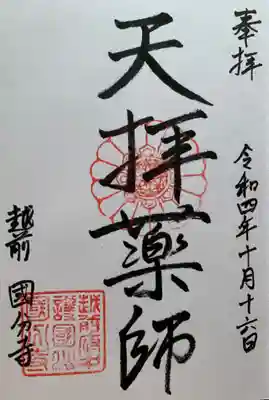 奉拝
令和四年十月十六日
天拝薬師
越前 國分寺